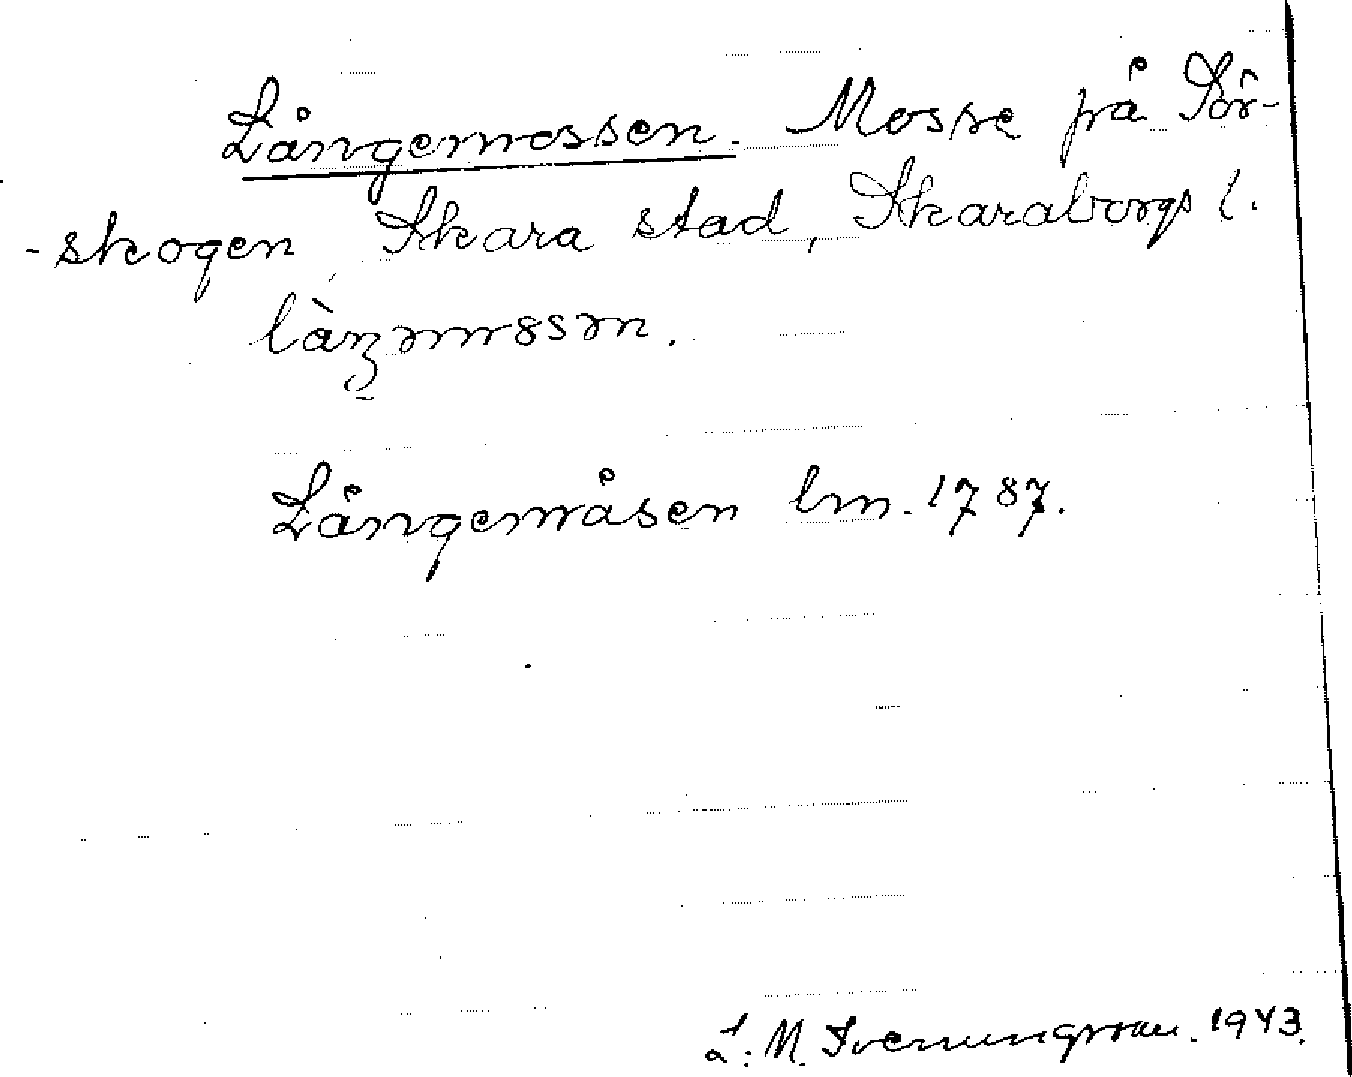 Långemossen. Mosse på Sör-
-skogen, Skara stad, Skaraborgs l.
Långemåsen lm. 1787.
L: M. Svenungsson. 1943.